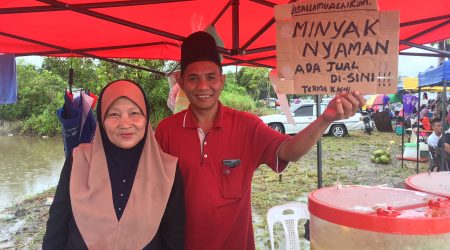 ASALLAMUALAIKUM.
MINYAK
NYAMAN
ADA JUAL
DI-SINI !!!
TERIMA KASIH